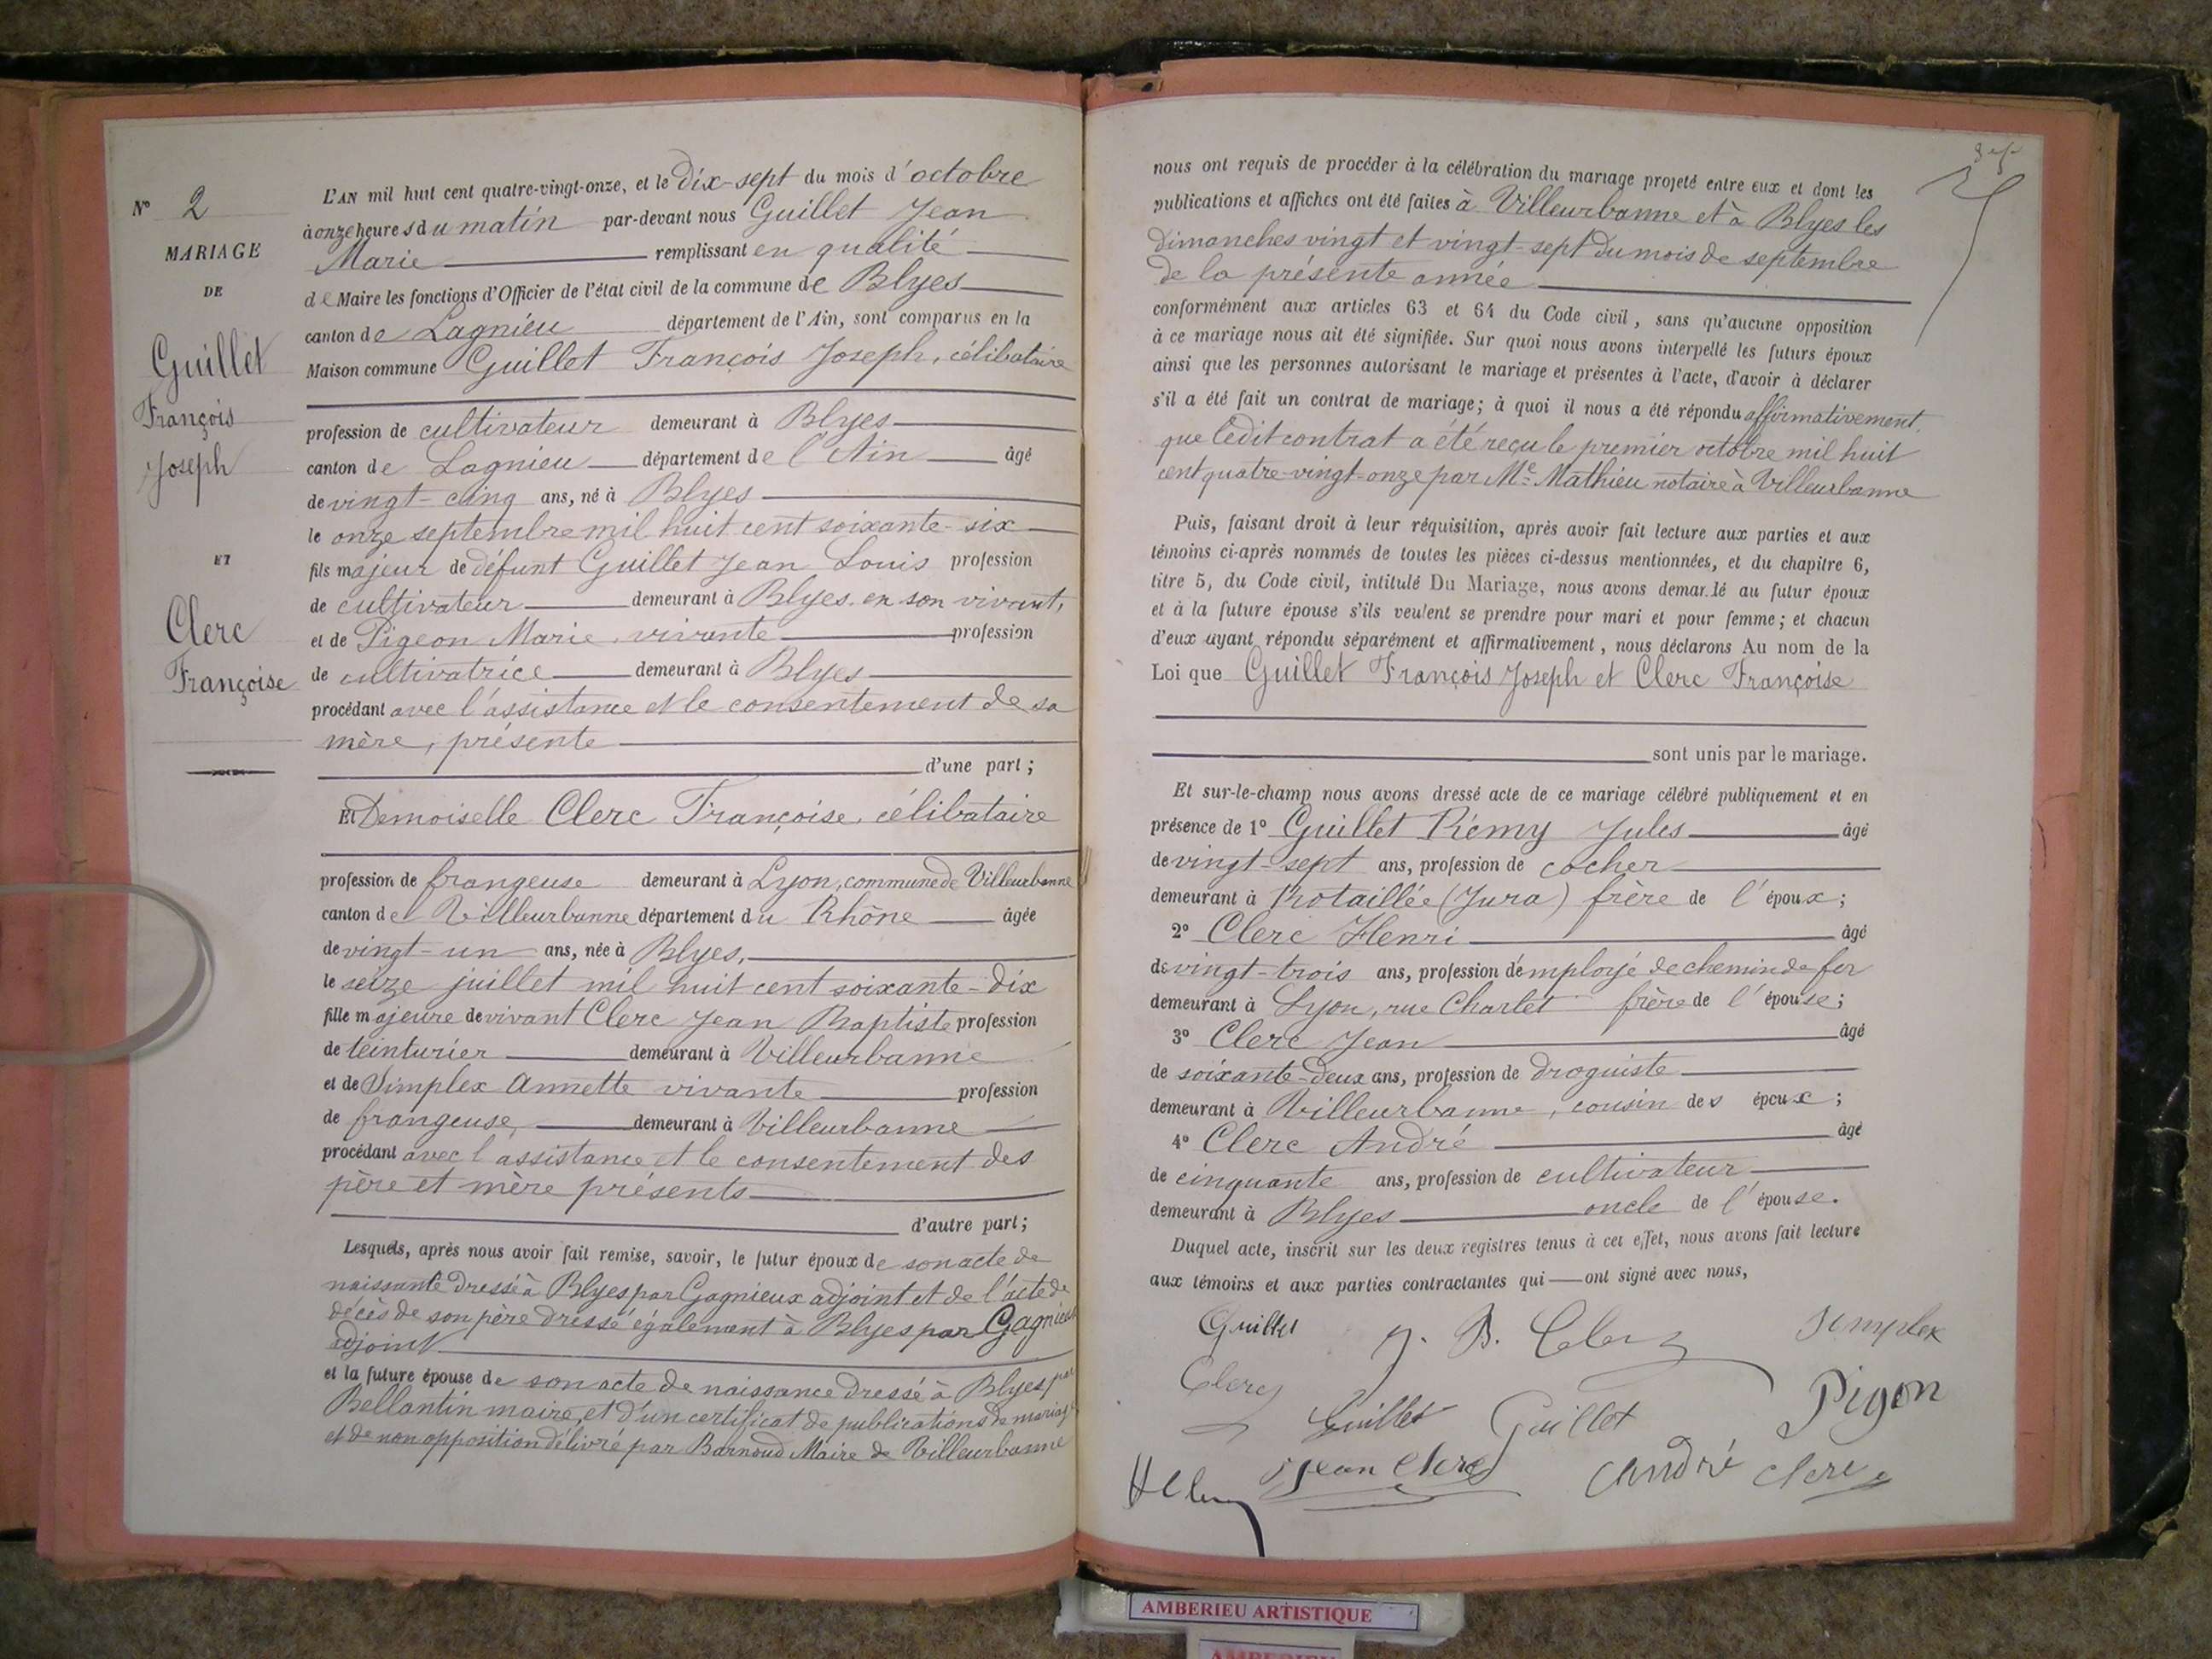 N° 2
MARIAGE
DE
Guillet
François
Joseph
ET
Clerc
Françoise
L'AN mil huit cent quatre-vingt-onze, et le Dix-sept du mois d'octobre
à onze heures du matin par-devant nous Guillet Jean
Marie remplissant en qualité
de Maire les fonctions d'Officier de l'état civil de la commune de Blyes
canton de Lagnieu département de l'Ain, sont comparus en la
Maison commune Guillet François Joseph, célibataire
profession de cultivateur demeurant à Blyes
canton de Lagnieu département de l'Ain âgé
de vingt-cinq ans, né à Blyes
le onze septembre mil huit cent soixante-six
fils majeur de défunt Guillet Jean Louis profession
de cultivateur demeurant à Blyes en son vivant,
et de Pigeon Marie, vivante profession
de cultivatrice demeurant à Blyes
procédant avec l'assistance et le consentement de sa
mère, présente
d'une part;
Et Demoiselle Clerc Françoise, célibataire
profession de frangeuse demeurant à Lyon, commune de Villeurbanne
canton de Villeurbanne département du Rhône âgée
de vingt-un ans, née à Blyes,
le seize juillet mil huit cent soixante-dix
fille majeure de vivant Clerc Jean Baptiste profession
de teinturier demeurant à Villeurbanne
et de Simplex Annette vivante profession
de frangeuse, demeurant à Villeurbanne
procédant avec l'assistance et le consentement des
père et mère présents
d'autre part;
Lesquels, après nous avoir fait remise, savoir, le futur époux de son acte de
naissante dressé à Blyes par Gagnieux adjoint et de l'acte de
décès de son père dressé également à Blyes par Gagnieux
adjoint
et la future épouse de son acte de naissance dressé à Blyes par
Bellantin maire, et d'un certificat de publications de mariage
et de non opposition délivré par Barnoud Maire de Villeurbanne
nous ont requis de procéder à la célébration du mariage projeté entre eux et dont les
publications et affiches ont été faites à Villeurbanne et à Blyes les
Dimanches vingt et vingt-sept du mois de septembre
de la présente année
conformément aux articles 63 et 64 du Code civil, sans qu'aucune opposition
à ce mariage nous ait été signifiée. Sur quoi nous avons interpellé les futurs époux
ainsi que les personnes autorisant le mariage et présentes à l'acte, d'avoir à déclarer
s'il a été fait un contrat de mariage; à quoi il nous a été répondu affirmativement
que ledit contrat a été reçu le premier octobre mil huit
cent quatre-vingt-onze par Me Mathieu notaire à Villeurbanne
Puis, faisant droit à leur réquisition, après avoir fait lecture aux parties et aux
témoins ci-après nommés de toutes les pièces ci-dessus mentionnées, et du chapitre 6,
titre 5, du Code civil, intitulé Du Mariage, nous avons demandé au futur époux
et à la future épouse s'ils veulent se prendre pour mari et pour femme; et chacun
d'eux ayant répondu séparément et affirmativement, nous déclarons Au nom de la
Loi que Guillet François Joseph et Clerc Françoise
sont unis par le mariage.
Et sur-le-champ nous avons dressé acte de ce mariage célébré publiquement et en
présence de 1° Guillet Rémy Jules âgé
de vingt-sept ans, profession de cocher
demeurant à Rotaillée (Jura) frère de l'époux;
2° Clerc Henri âgé
de vingt-trois ans, profession d'employé de chemin de fer
demeurant à Lyon, rue Charlet frère de l'épouse;
3° Clerc Jean âgé
de soixante-deux ans, profession de droguiste
demeurant à Villeurbanne, cousin des époux;
4° Clerc André âgé
de cinquante ans, profession de cultivateur
demeurant à Blyes oncle de l'épouse.
Duquel acte, inscrit sur les deux registres tenus à cet effet, nous avons fait lecture
aux témoins et aux parties contractantes qui ont signé avec nous,
Guillet J. B. Clerc Simplex
Clerc Guillet Guillet Pigon
H Clerc Jean Clerc André Clerc
AMBERIEU ARTISTIQUE
AMBERIEU